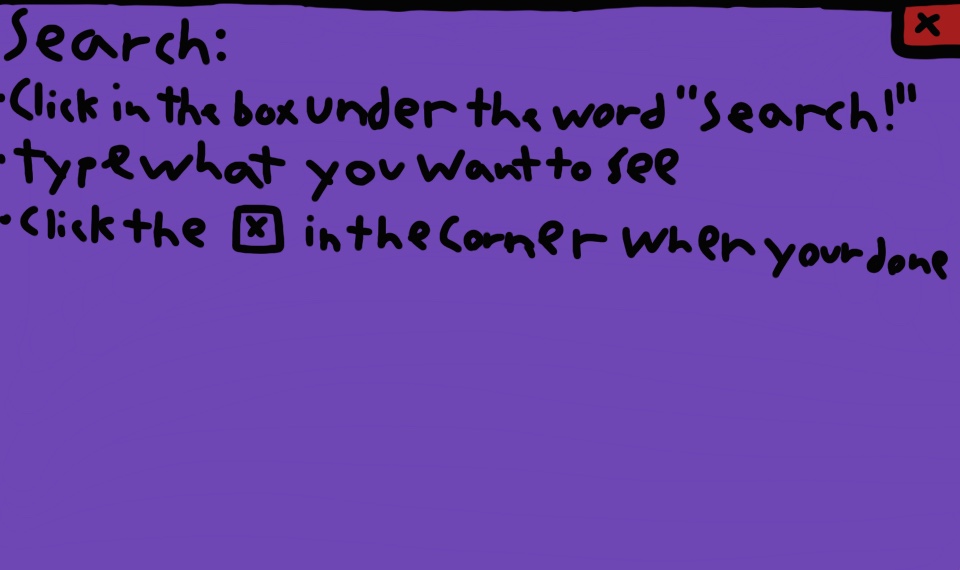 Search:
x
·Click in the box under the word "Search!"
·type what you want to see
·Click the x in the Corner when your done